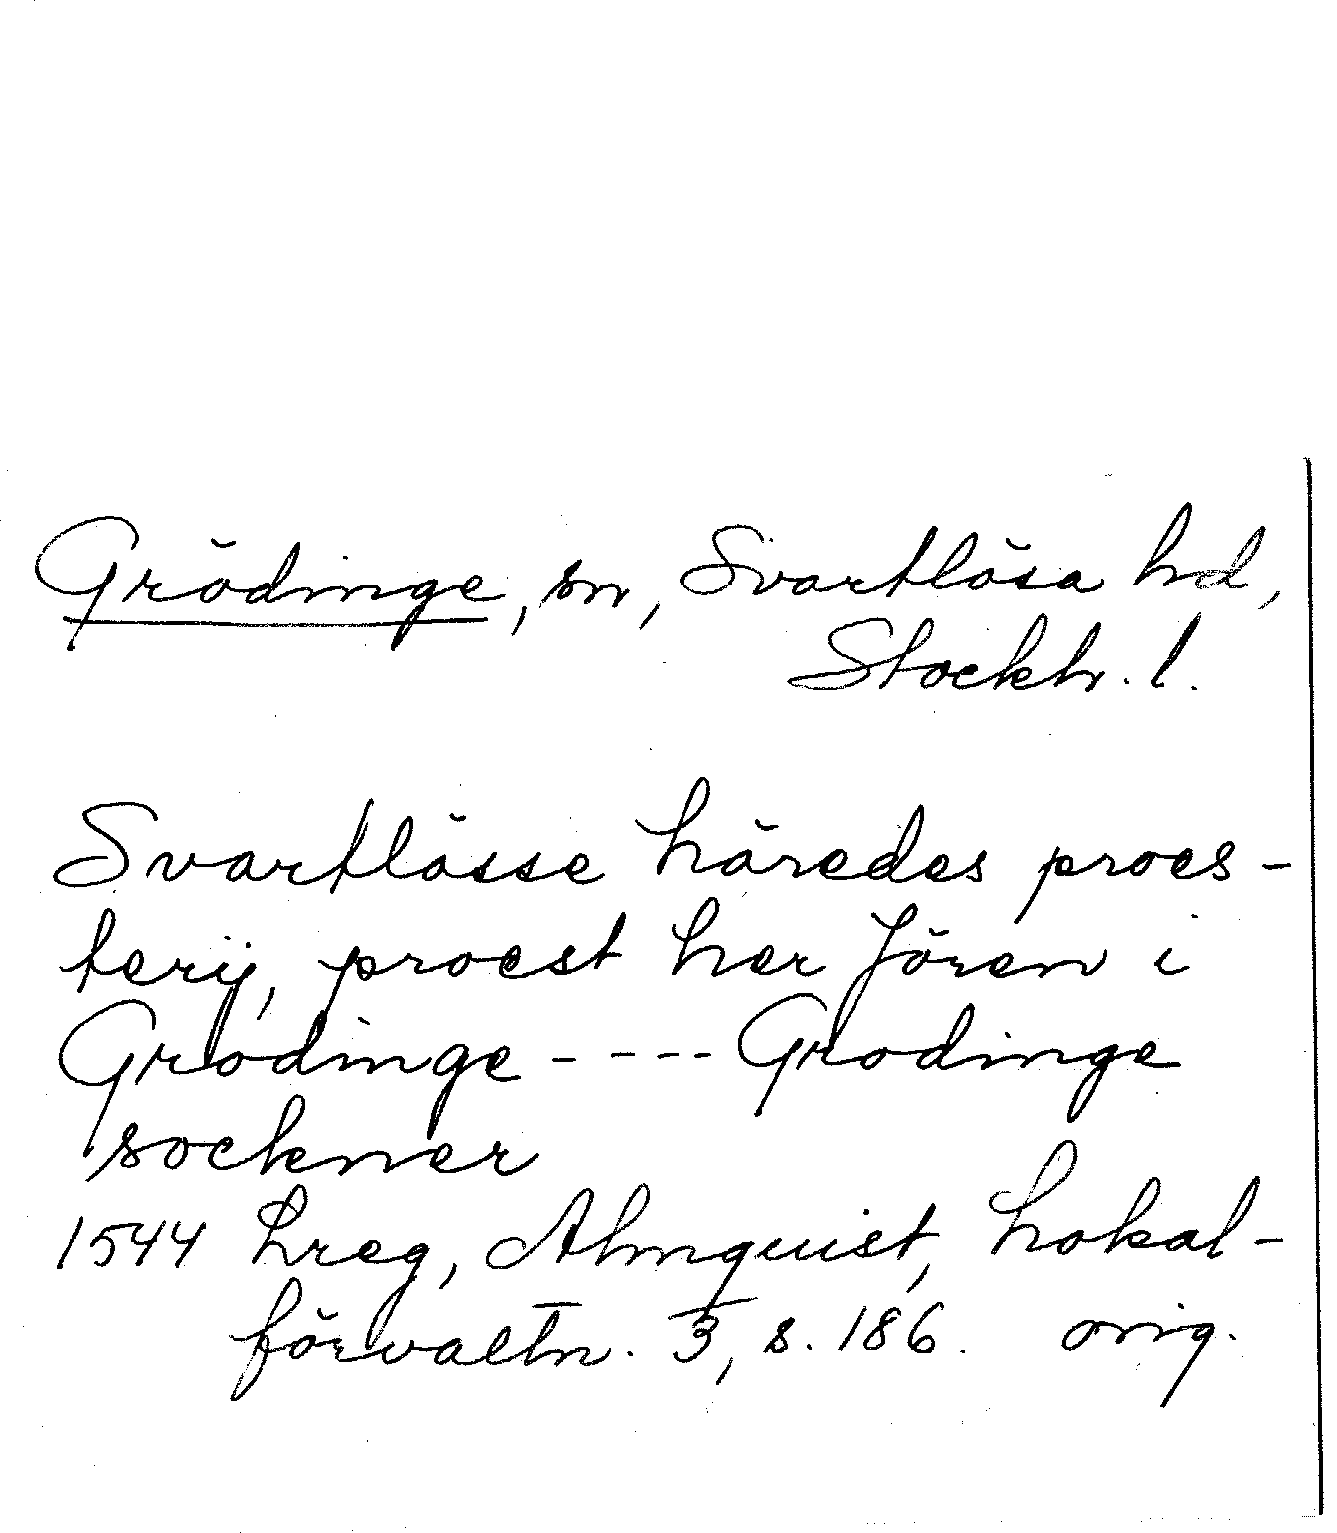 Grödinge, sn, Svartlösa hd,
Stockh. l.
Svartlösse häredes proes-
terij, proest her Jören i
Grödinge - - - - Grodinge
sockner
1544 Lreg, Almquist, Lokal-
förvaltn. 3, s. 186. orig.